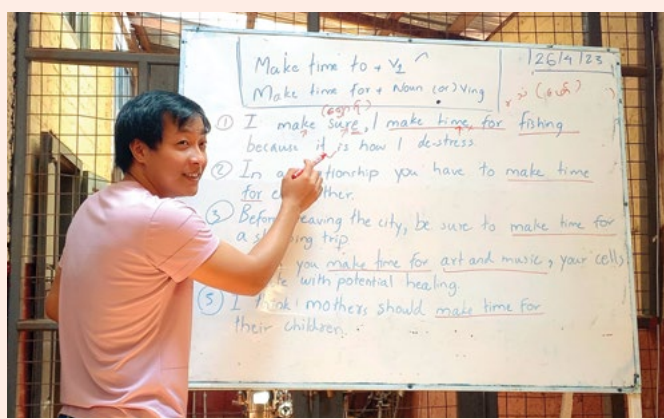 Make time to + V1
|26|4|23
Make time for + Noun (or) Ving
① I make sure, I make time for fishing
because it is how I de-stress.
② In a you have to make time
for
③ Before leaving the city, be sure to make time for
a trip
you make time for art and music, your cells
with potential healing.
⑤ I think mothers should make time for
their children.